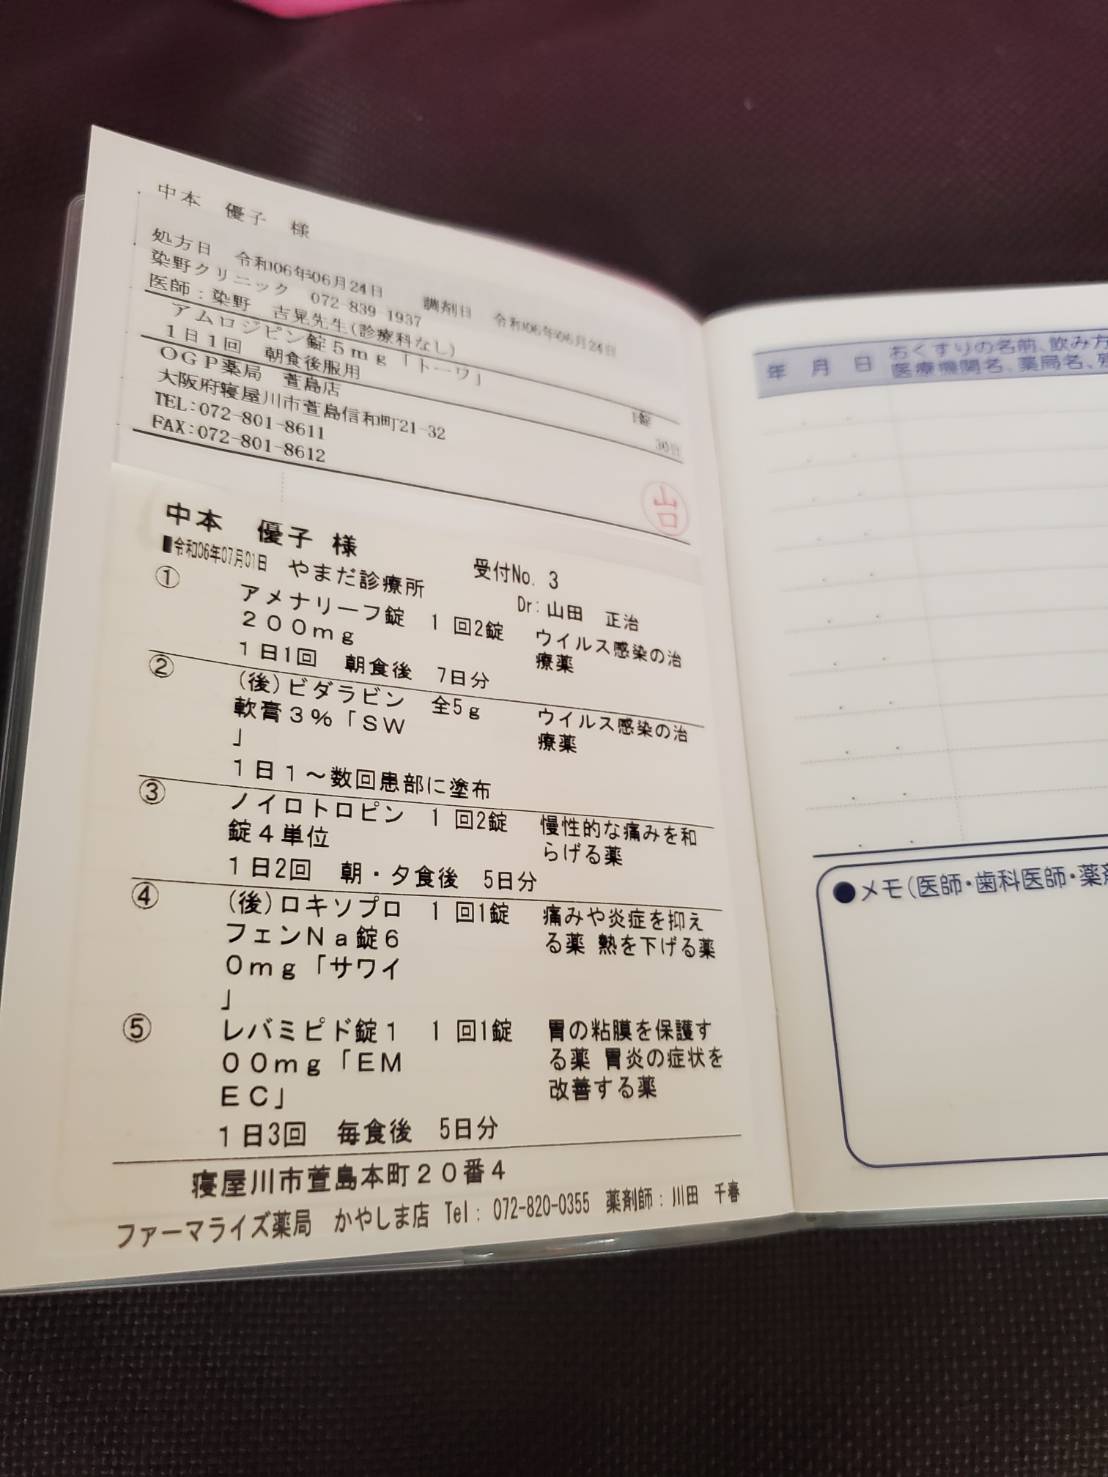 中本 優子 様
処方日 令和06年06月24日 調剤日 令和06年06月24日
染野クリニック 072-839-1937
医師：染野 吉晃先生(診療科なし)
アムロジピン錠５ｍｇ「トーワ」 1錠
１日１回 朝食後服用 30日
ＯＧＰ薬局 萱島店
大阪府寝屋川市萱島信和町21-32
TEL:072-801-8611
FAX:072-801-8612
山口
中本 優子 様
■令和06年07月01日 やまだ診療所 受付No. 3
Dr:山田 正治
① アメナリーフ錠 1 回2錠 ウイルス感染の治
２００ｍｇ 療薬
１日1回 朝食後 7日分
② (後)ビダラビン 全5ｇ ウイルス感染の治
軟膏３％「ＳＷ 療薬
」
１日１～数回患部に塗布
③ ノイロトロピン 1 回2錠 慢性的な痛みを和
錠４単位 らげる薬
１日2回 朝・夕食後 5日分
④ (後)ロキソプロ 1 回1錠 痛みや炎症を抑え
フェンＮａ錠６ る薬 熱を下げる薬
０ｍｇ「サワイ
」
⑤ レバミピド錠１ 1 回1錠 胃の粘膜を保護す
００ｍｇ「ＥＭ る薬 胃炎の症状を
ＥＣ」 改善する薬
１日3回 毎食後 5日分
寝屋川市萱島本町２０番４
ファーマライズ薬局 かやしま店 Tel: 072-820-0355 薬剤師：川田 千春
年 月 日 おくすりの名前、飲み方
医療機関名、薬局名、
●メモ(医師・歯科医師・薬剤